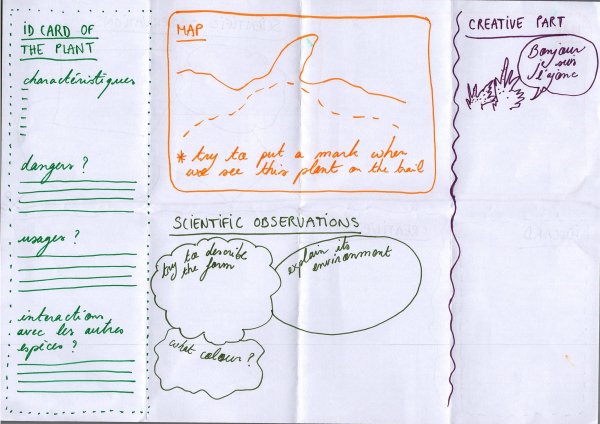 iD CARD OF
THE PLANT
charactéristiques
dangers ?
usages ?
interactions
avec les autres
espèces ?
MAP
* try to put a mark when
we see this plant on the trail
SCIENTIFIC OBSERVATIONS
try to describe
the form
explain its
environment
what colour ?
CREATIVE PART
Bonjour
je suis
l'ajonc